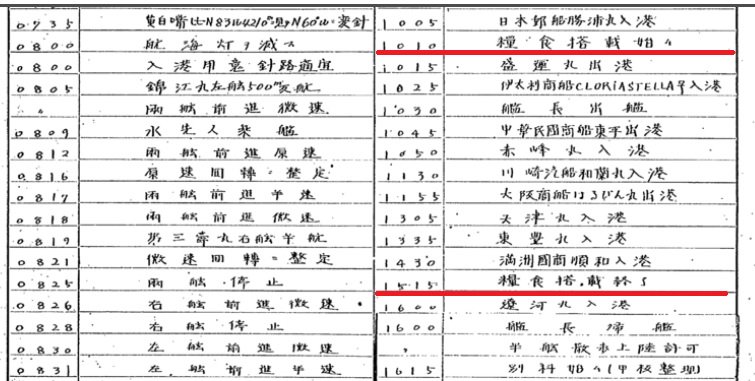 0735 黄白嘴ヒN83W4210°ヨリN60°Wニ変針
0800 航海灯ヲ減ス
0800 入港用意針路適宜
0805 錦江丸左舷500m反航
〃 両舷前進微速
0809 水先人乗艦
0812 両舷前進原速
0816 原速回転整定
0817 両舷前進半速
0818 両舷前進微速
0819 第三 丸右舷 航
0821 微速回転整定
0825 両舷停止
0826 右舷前進微速
0828 右舷停止
0830 左舷前進微速
0831 左舷前進半速
1005 日本郵船勝浦丸入港
1010 糧食搭載始ム
1015 盛運丸出港
1025 伊太利商船CLORIASTELLA号入港
1030 艦長出艦
1045 中華民國商船東平出港
1050 赤峰丸入港
1130 川崎汽船和蘭丸入港
1155 大阪商船はるびん丸出港
1305 天津丸入港
1335 東豊丸入港
1430 満洲國商順和入港
1515 糧食搭載終ル
1600 遼河丸入港
1600 艦長帰艦
〃 半舷散歩上陸許可
1615 別科始メ(甲板整理)